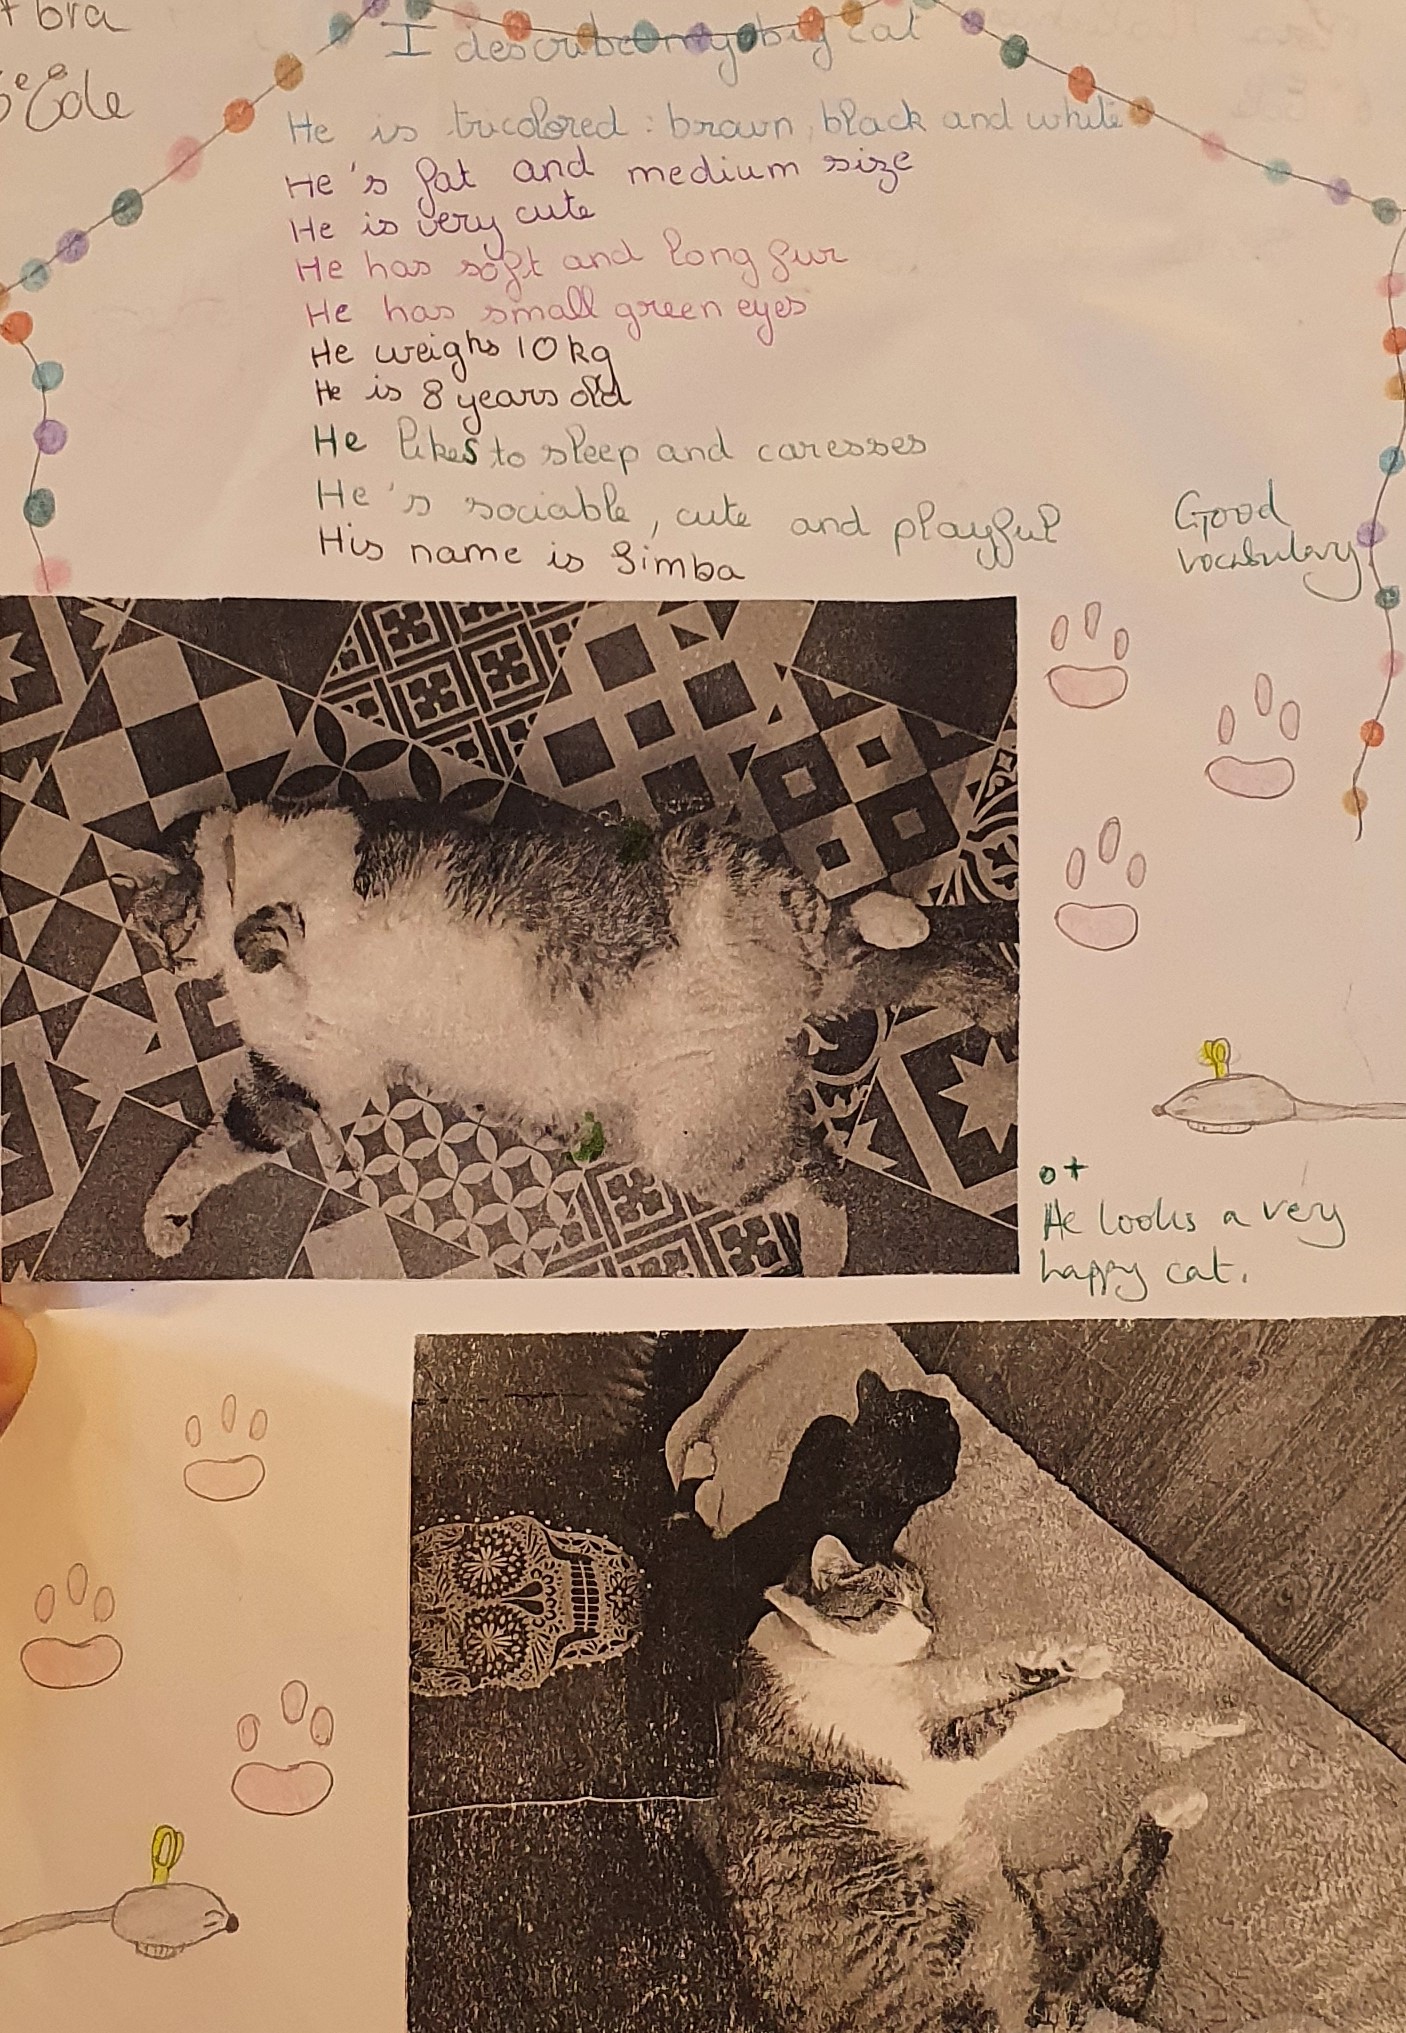 bra
I describe my big cat
He is tricolored : brown, black and white
He's fat and medium size
He is very cute
He has soft and long fur
He has small green eyes
He weighs 10 kg
He is 8 years old
He likes to sleep and caresses
He's sociable, cute and playful
His name is Simba
Good
vocabulary
He looks a very
happy cat.